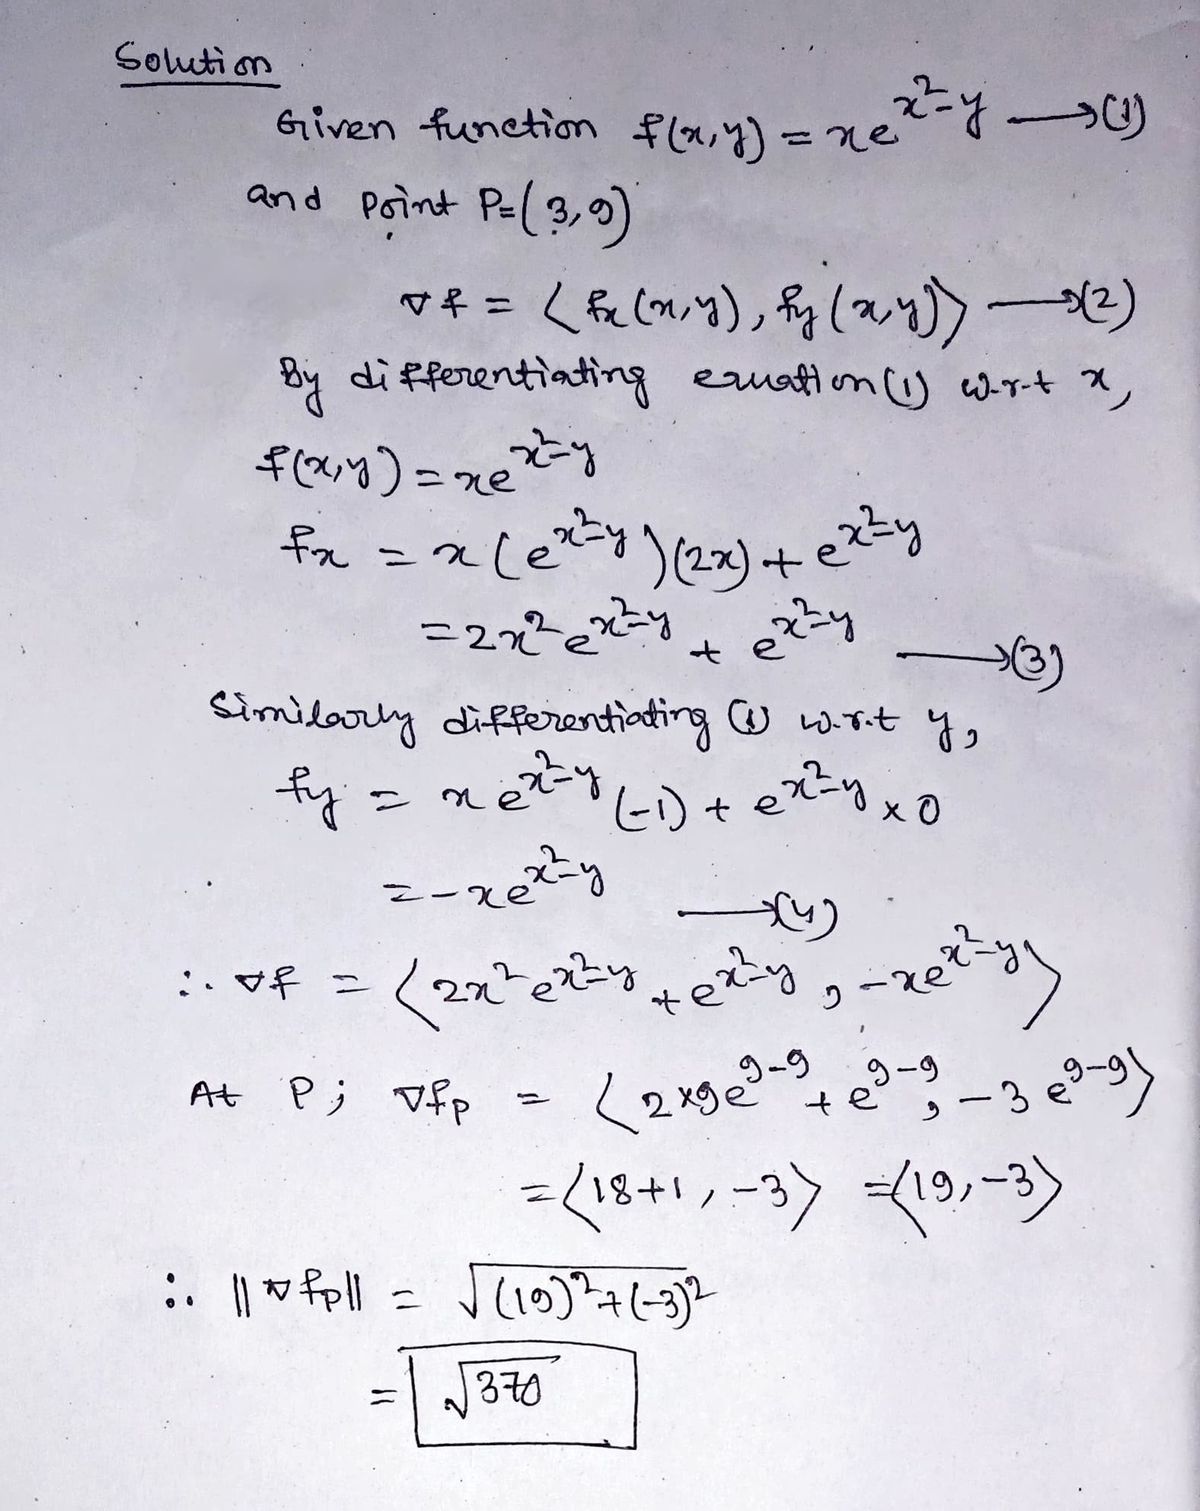 Solution
Given function f(x,y) = xe^{x²-y} ⟶(1)
and point P=(3,9)
∇f = ⟨fx(x,y), fy(x,y)⟩ ⟶(2)
By differentiating equation(1) w.r.t x,
f(x,y) = xe^{x²-y}
fx = x(e^{x²-y})(2x) + e^{x²-y}
= 2x² e^{x²-y} + e^{x²-y} ⟶(3)
Similarly differentiating (1) w.r.t y,
fy = x e^{x²-y} (-1) + e^{x²-y} × 0
= -xe^{x²-y} ⟶(4)
∴ ∇f = ⟨2x² e^{x²-y} + e^{x²-y}, -xe^{x²-y}⟩
At P; ∇fp = ⟨2×9e^{9-9} + e^{9-9}, -3 e^{9-9}⟩
= ⟨18+1, -3⟩ = ⟨19, -3⟩
∴ ||∇fp|| = √((19)² + (-3)²)
= √370